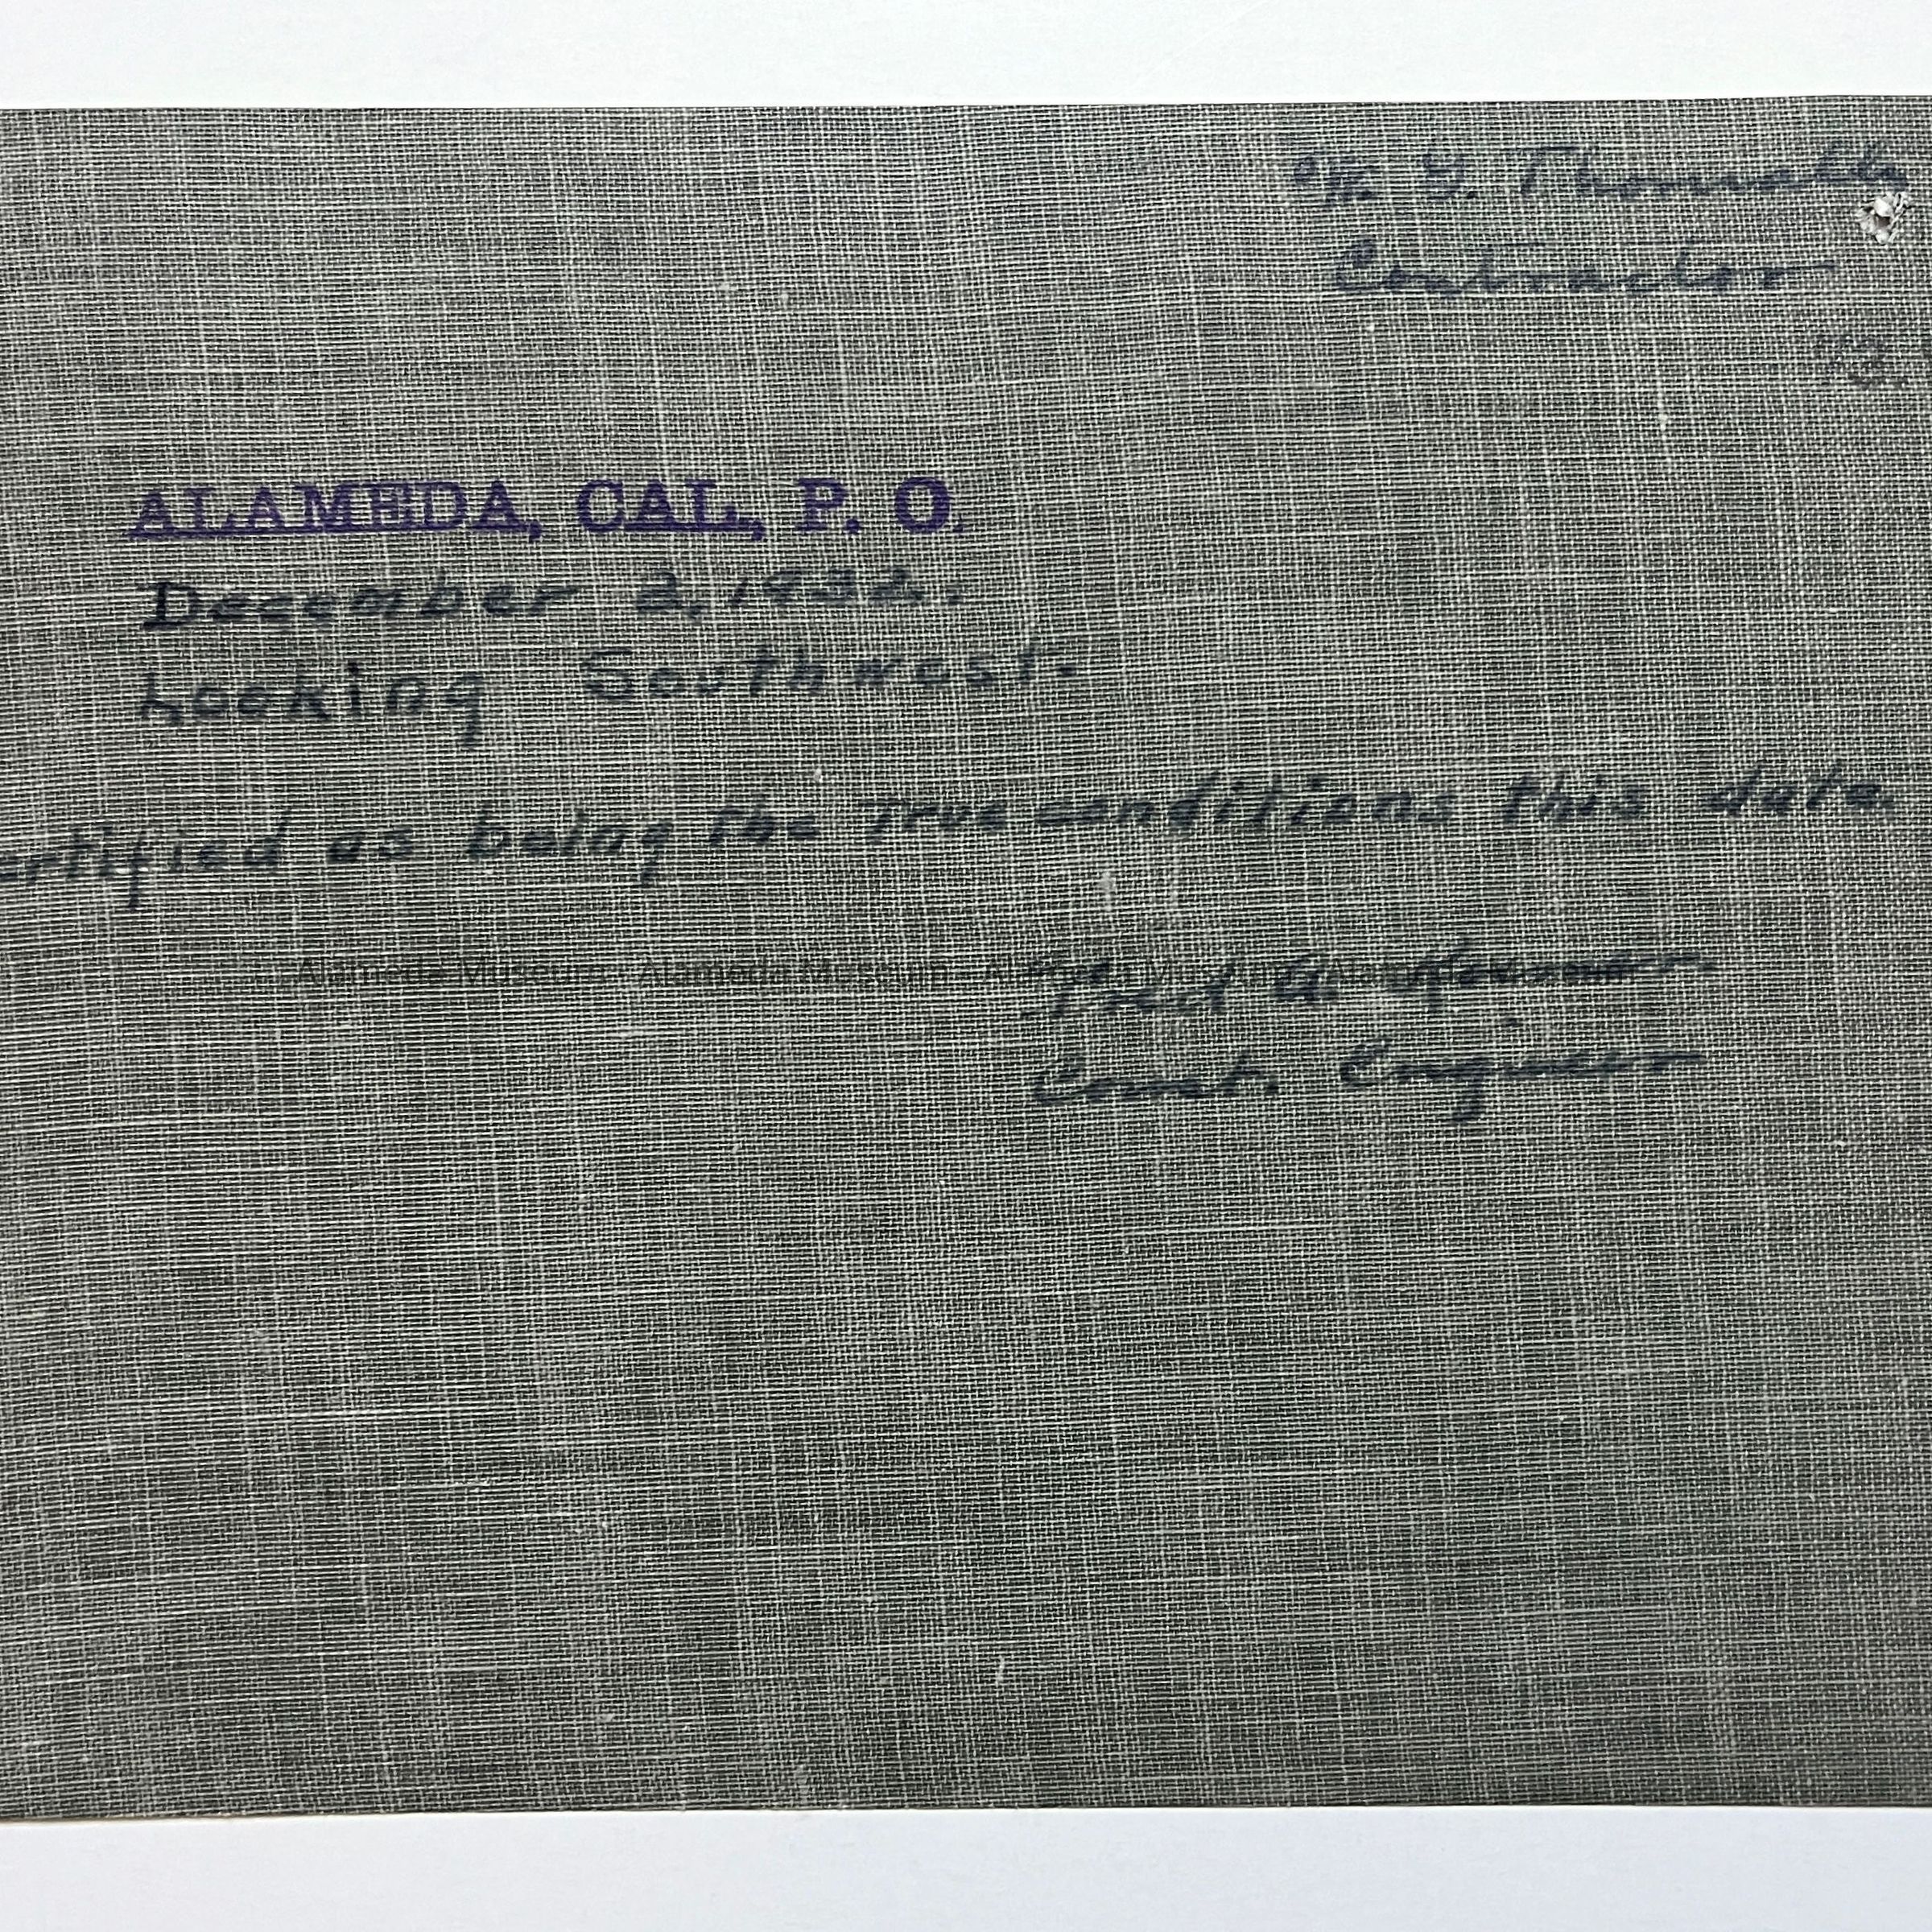 Contractor
"3.
ALAMEDA, CAL., P. O.
December 2, 1932.
Looking Southwest.
ertified as being the true conditions this date.
Alameda Museum - Alameda Museum - Alameda Museum - Alameda
Fred A.
Const. Engineer